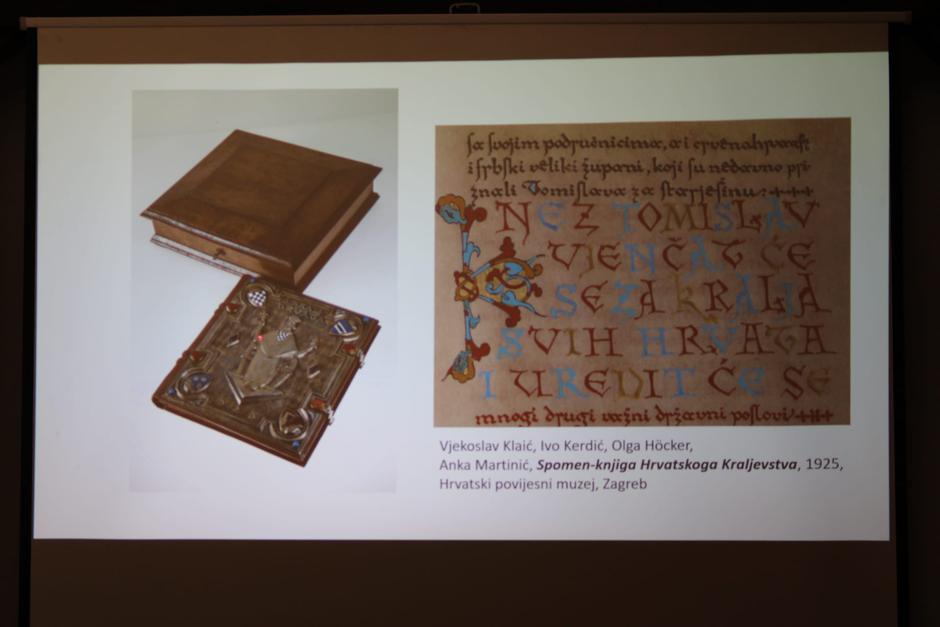 sa svojim područnicima, a i crvenohrvatski
i srbski veliki župani, koji su nedavno pri-
znali Tomislava za starješinu:
KNEZ TOMISLAV
VJENČAT ĆE
SE ZA KRALJA
SVIH HRVATA
I UREDIT ĆE SE
mnogi drugi važni državni poslovi
Vjekoslav Klaić, Ivo Kerdić, Olga Höcker,
Anka Martinić, Spomen-knjiga Hrvatskoga Kraljevstva, 1925,
Hrvatski povijesni muzej, Zagreb